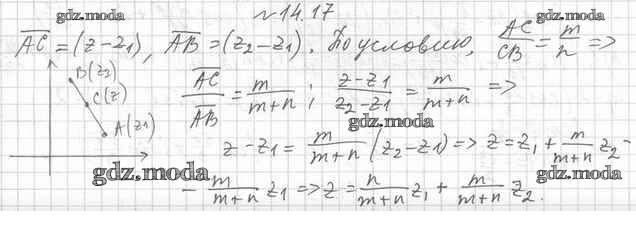 №14.17
gdz.moda
AC = (z-z1), AB = (z2-z1). По условию, AC/CB = m/n =>
B(z2)
C(z)
A(z1)
AC/AB = m/(m+n); (z-z1)/(z2-z1) = m/(m+n) =>
gdz.moda
z-z1 = m/(m+n) (z2-z1) => z = z1 + m/(m+n) z2 -
gdz.moda gdz.moda
- m/(m+n) z1 => z = n/(m+n) z1 + m/(m+n) z2.